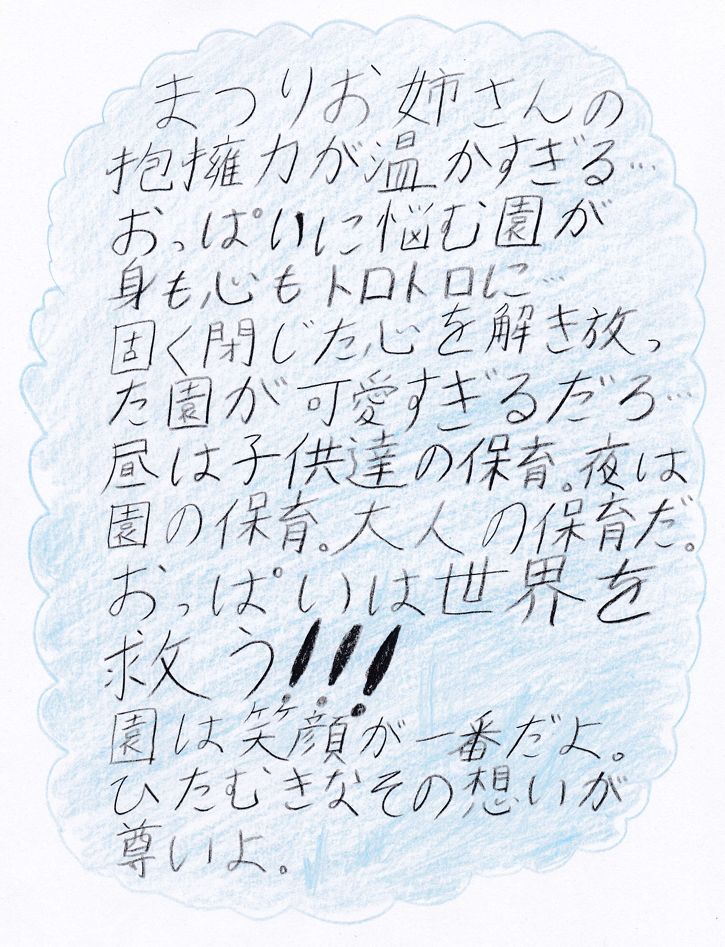 まつりお姉さんの
抱擁力が温かすぎる…
おっぱいに悩む園が
身も心もトロトロに…
固く閉じた心を解き放っ
た園が可愛すぎるだろ…
昼は子供達の保育。夜は
園の保育。大人の保育だ。
おっぱいは世界を
救う!!!
園は笑顔が一番だよ。
ひたむきなその想いが
尊いよ。